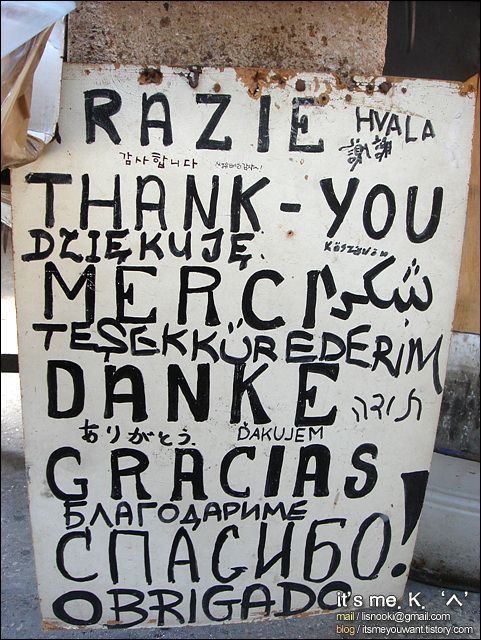 GRAZIE HVALA
감사합니다 謝謝
THANK-YOU
DZIĘKUJĘ Köszönöm
MERCI شكرا
TEŞEKKÜR EDERIM
DANKE תודה
ありがとう ĎAKUJEM
GRACIAS
БЛАГОДАРИМЕ
СПАСИБО!
OBRIGADO
it's me. K. '^'
mail / lisnooki@gmail.com
blog / itsmeyouwant.tistory.com